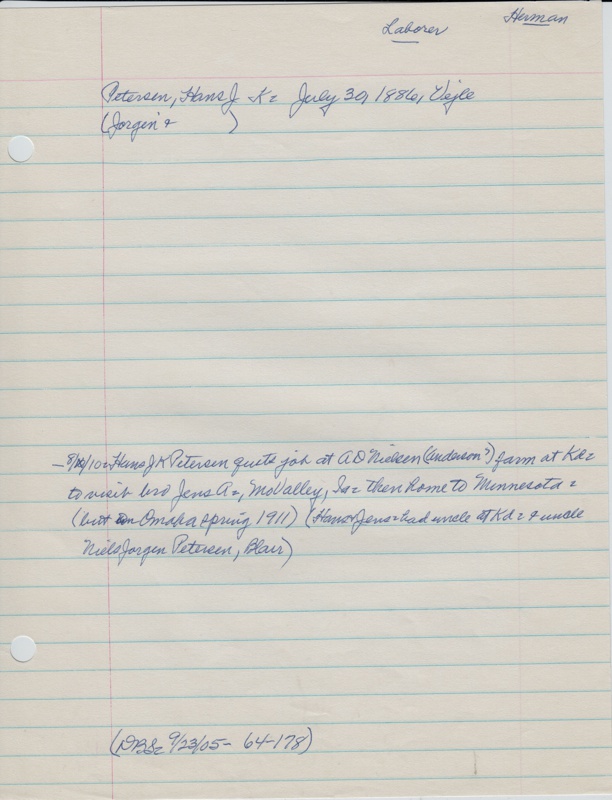 Herman
Laborer
Petersen, Hans J K= July 30, 1886, Vejle
(Jorgen & )
- 8/10/10= Hans J K Petersen quits job at A D Nielsen (Anderson?) farm at Kd=
to visit bro Jens A=, MoValley, Ia= then home to Minnesota=
(but on Omaha spring 1911) (Hans & Jens= had uncle at Kd= & uncle
Niels Jorgen Petersen, Blair)
(DBS= 9/23/05- 64-178)